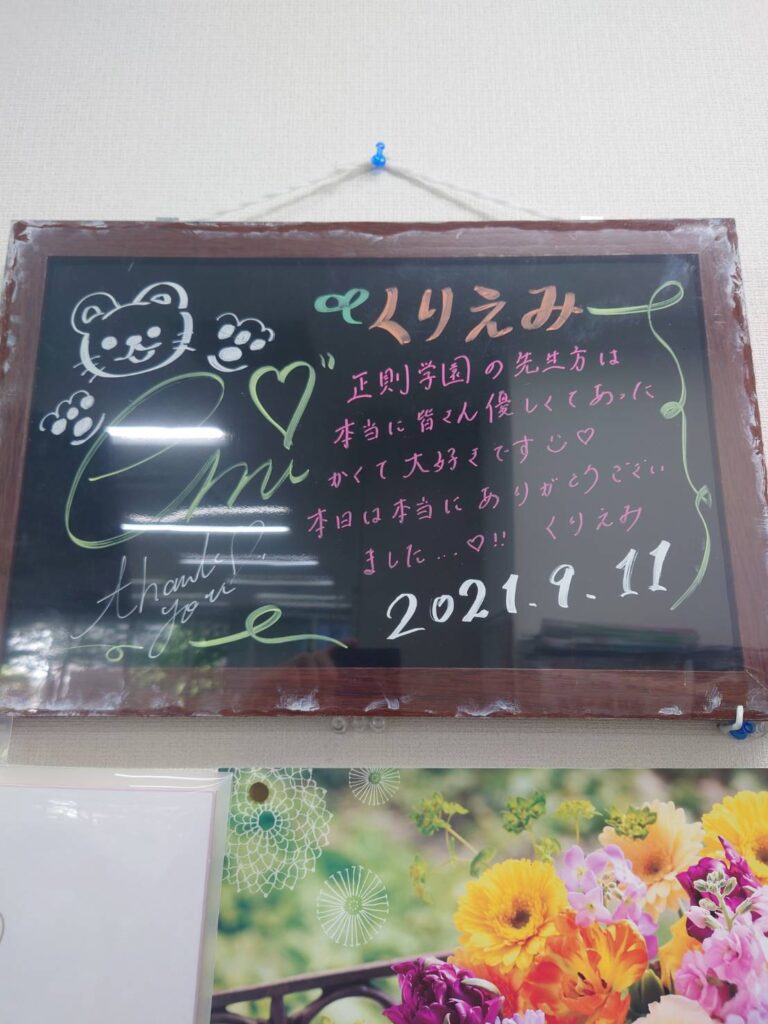 くりえみ
正則学園の先生方は
本当に皆さん優しくてあった
かくて大好きです♡
本日は本当にありがとうござい
ました…♡!! くりえみ
2021.9.11
Emi
thank you